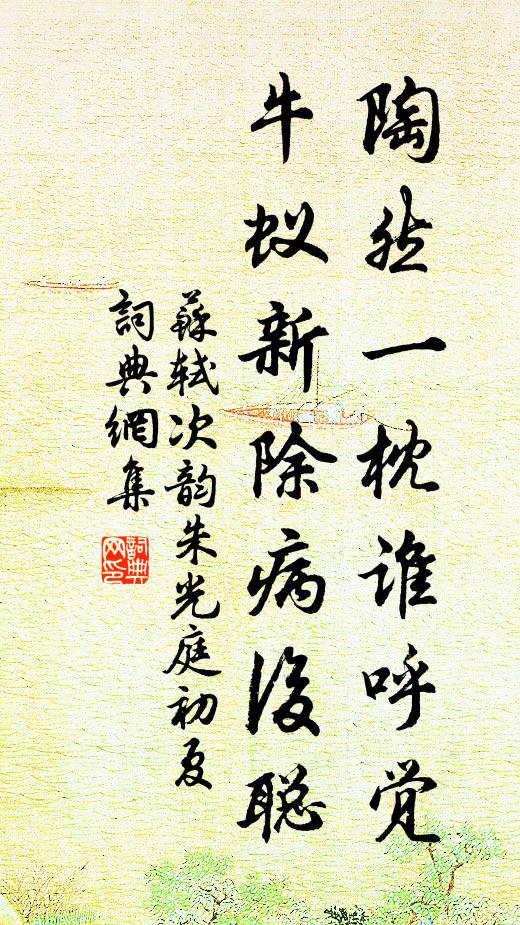 陶然一枕谁呼觉
牛蚁新除病后聪
蘇轼次韵朱光庭初夏
詞典網集
詞典网印